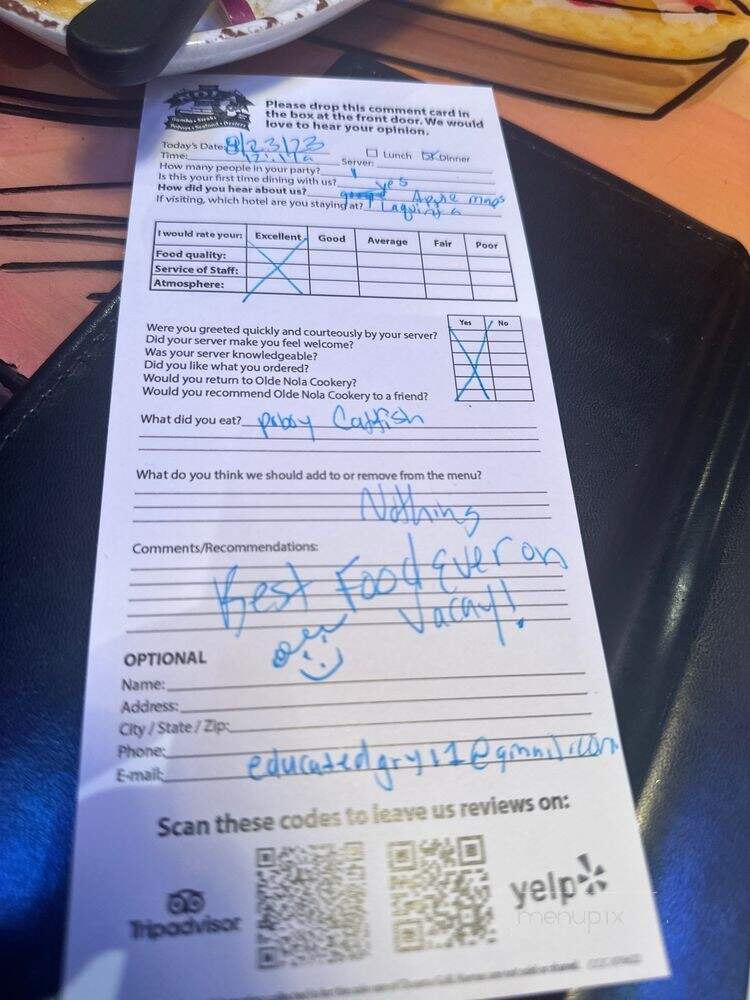 Gumbo • Steaks
Poboys • Seafood • Oysters
Please drop this comment card in
the box at the front door. We would
love to hear your opinion.
Today's Date: 8/23/23 Lunch Dinner
Time: Server:
How many people in your party? 1
Is this your first time dining with us? yes
How did you hear about us? Apple maps
If visiting, which hotel are you staying at? Laquinta
I would rate your: Excellent Good Average Fair Poor
Food quality:
Service of Staff:
Atmosphere:
Yes No
Were you greeted quickly and courteously by your server?
Did your server make you feel welcome?
Was your server knowledgeable?
Did you like what you ordered?
Would you return to Olde Nola Cookery?
Would you recommend Olde Nola Cookery to a friend?
What did you eat? poboy Catfish
What do you think we should add to or remove from the menu?
Nothing
Comments/Recommendations:
Best Food Ever on
Vacay!
OPTIONAL
Name:
Address:
City / State / Zip:
Phone:
E-mail:
Scan these codes to leave us reviews on:
Tripadvisor
yelp
menupix